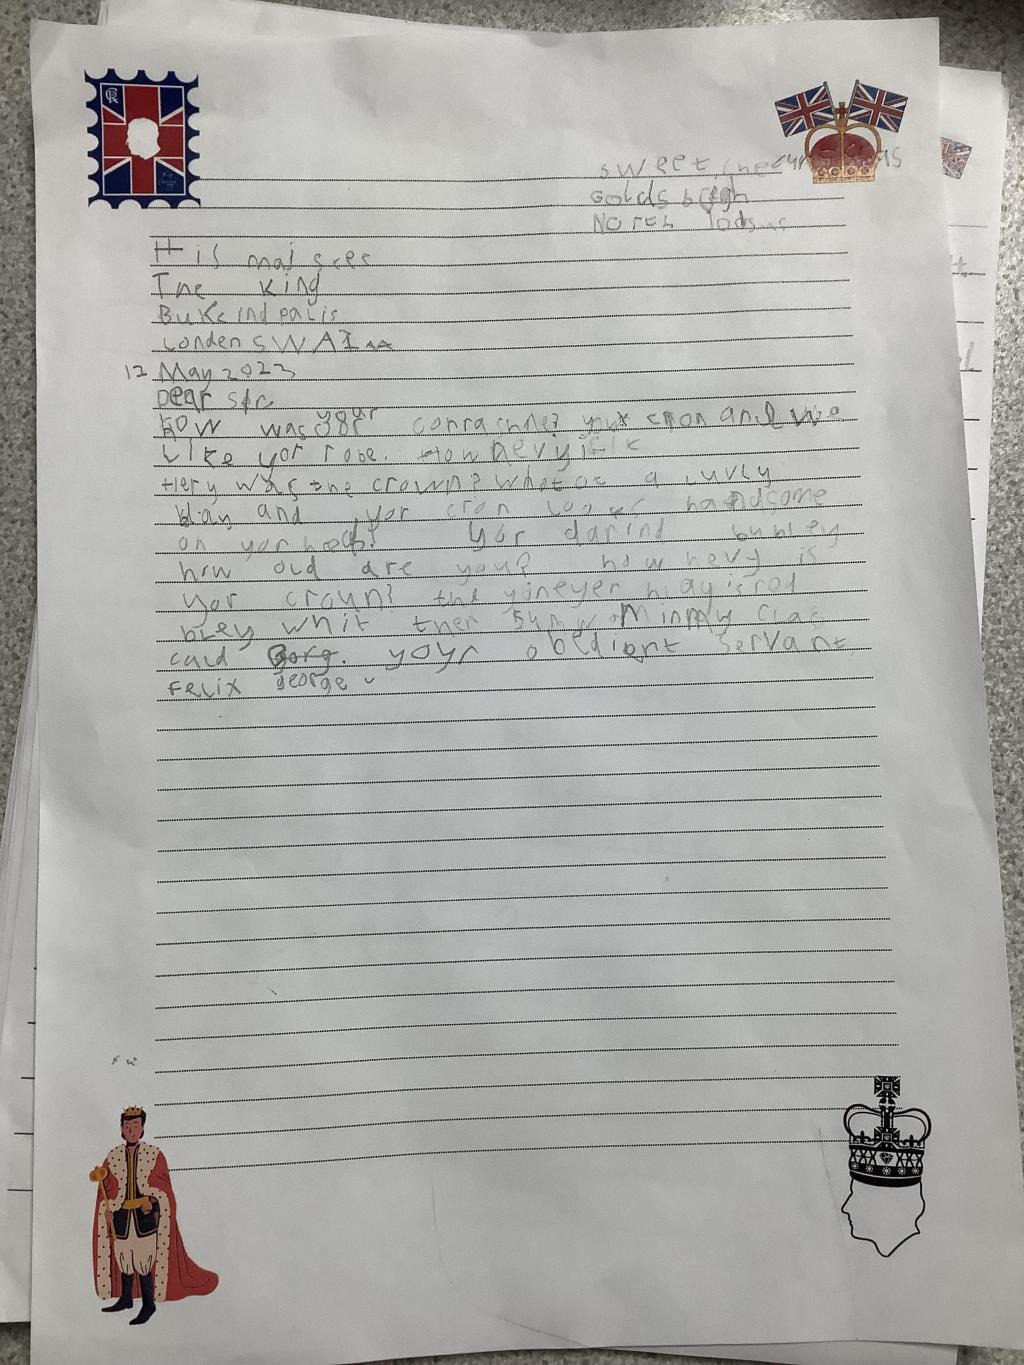 sweet
Golds
His maj
The King
Bukcind palis
Londen SWA1AA
12 May 2023
Dear sir
How was your conrachne? your cron and we
Like yor robe. How hevy
Hery was the crown? what a luvly
day and yor cron handsome
on yor head? Yor darind
how old are you? how hevy is
yor croun? the is red
bley whit then Sum w m in my Clas
cald your obidient servant
Felix george